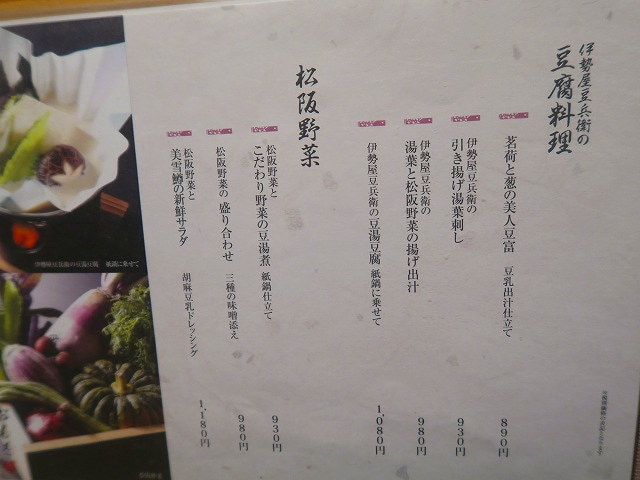 伊勢屋豆兵衛の
豆腐料理
茗荷と葱の美人豆富 豆乳出汁仕立て
890円
伊勢屋豆兵衛の
引き揚げ湯葉刺し
930円
伊勢屋豆兵衛の
湯葉と松阪野菜の揚げ出汁
980円
伊勢屋豆兵衛の豆湯豆腐 紙鍋に乗せて
1,080円
松阪野菜
松阪野菜と
こだわり野菜の豆湯煮 紙鍋仕立て
930円
松阪野菜の盛り合わせ 三種の味噌添え
980円
松阪野菜と
美雪鱒の新鮮サラダ 胡麻豆乳ドレッシング
1,180円
伊勢屋豆兵衛の豆湯豆腐 紙鍋に乗せて